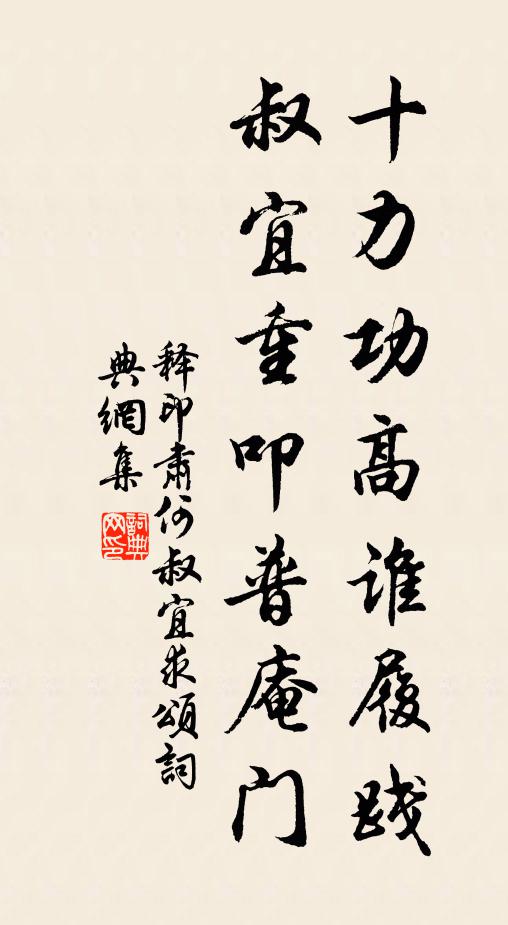 十力功高谁履践
叔宜重叩普庵门
释印肃何叔宜求颂詞
典網集
詞典网印